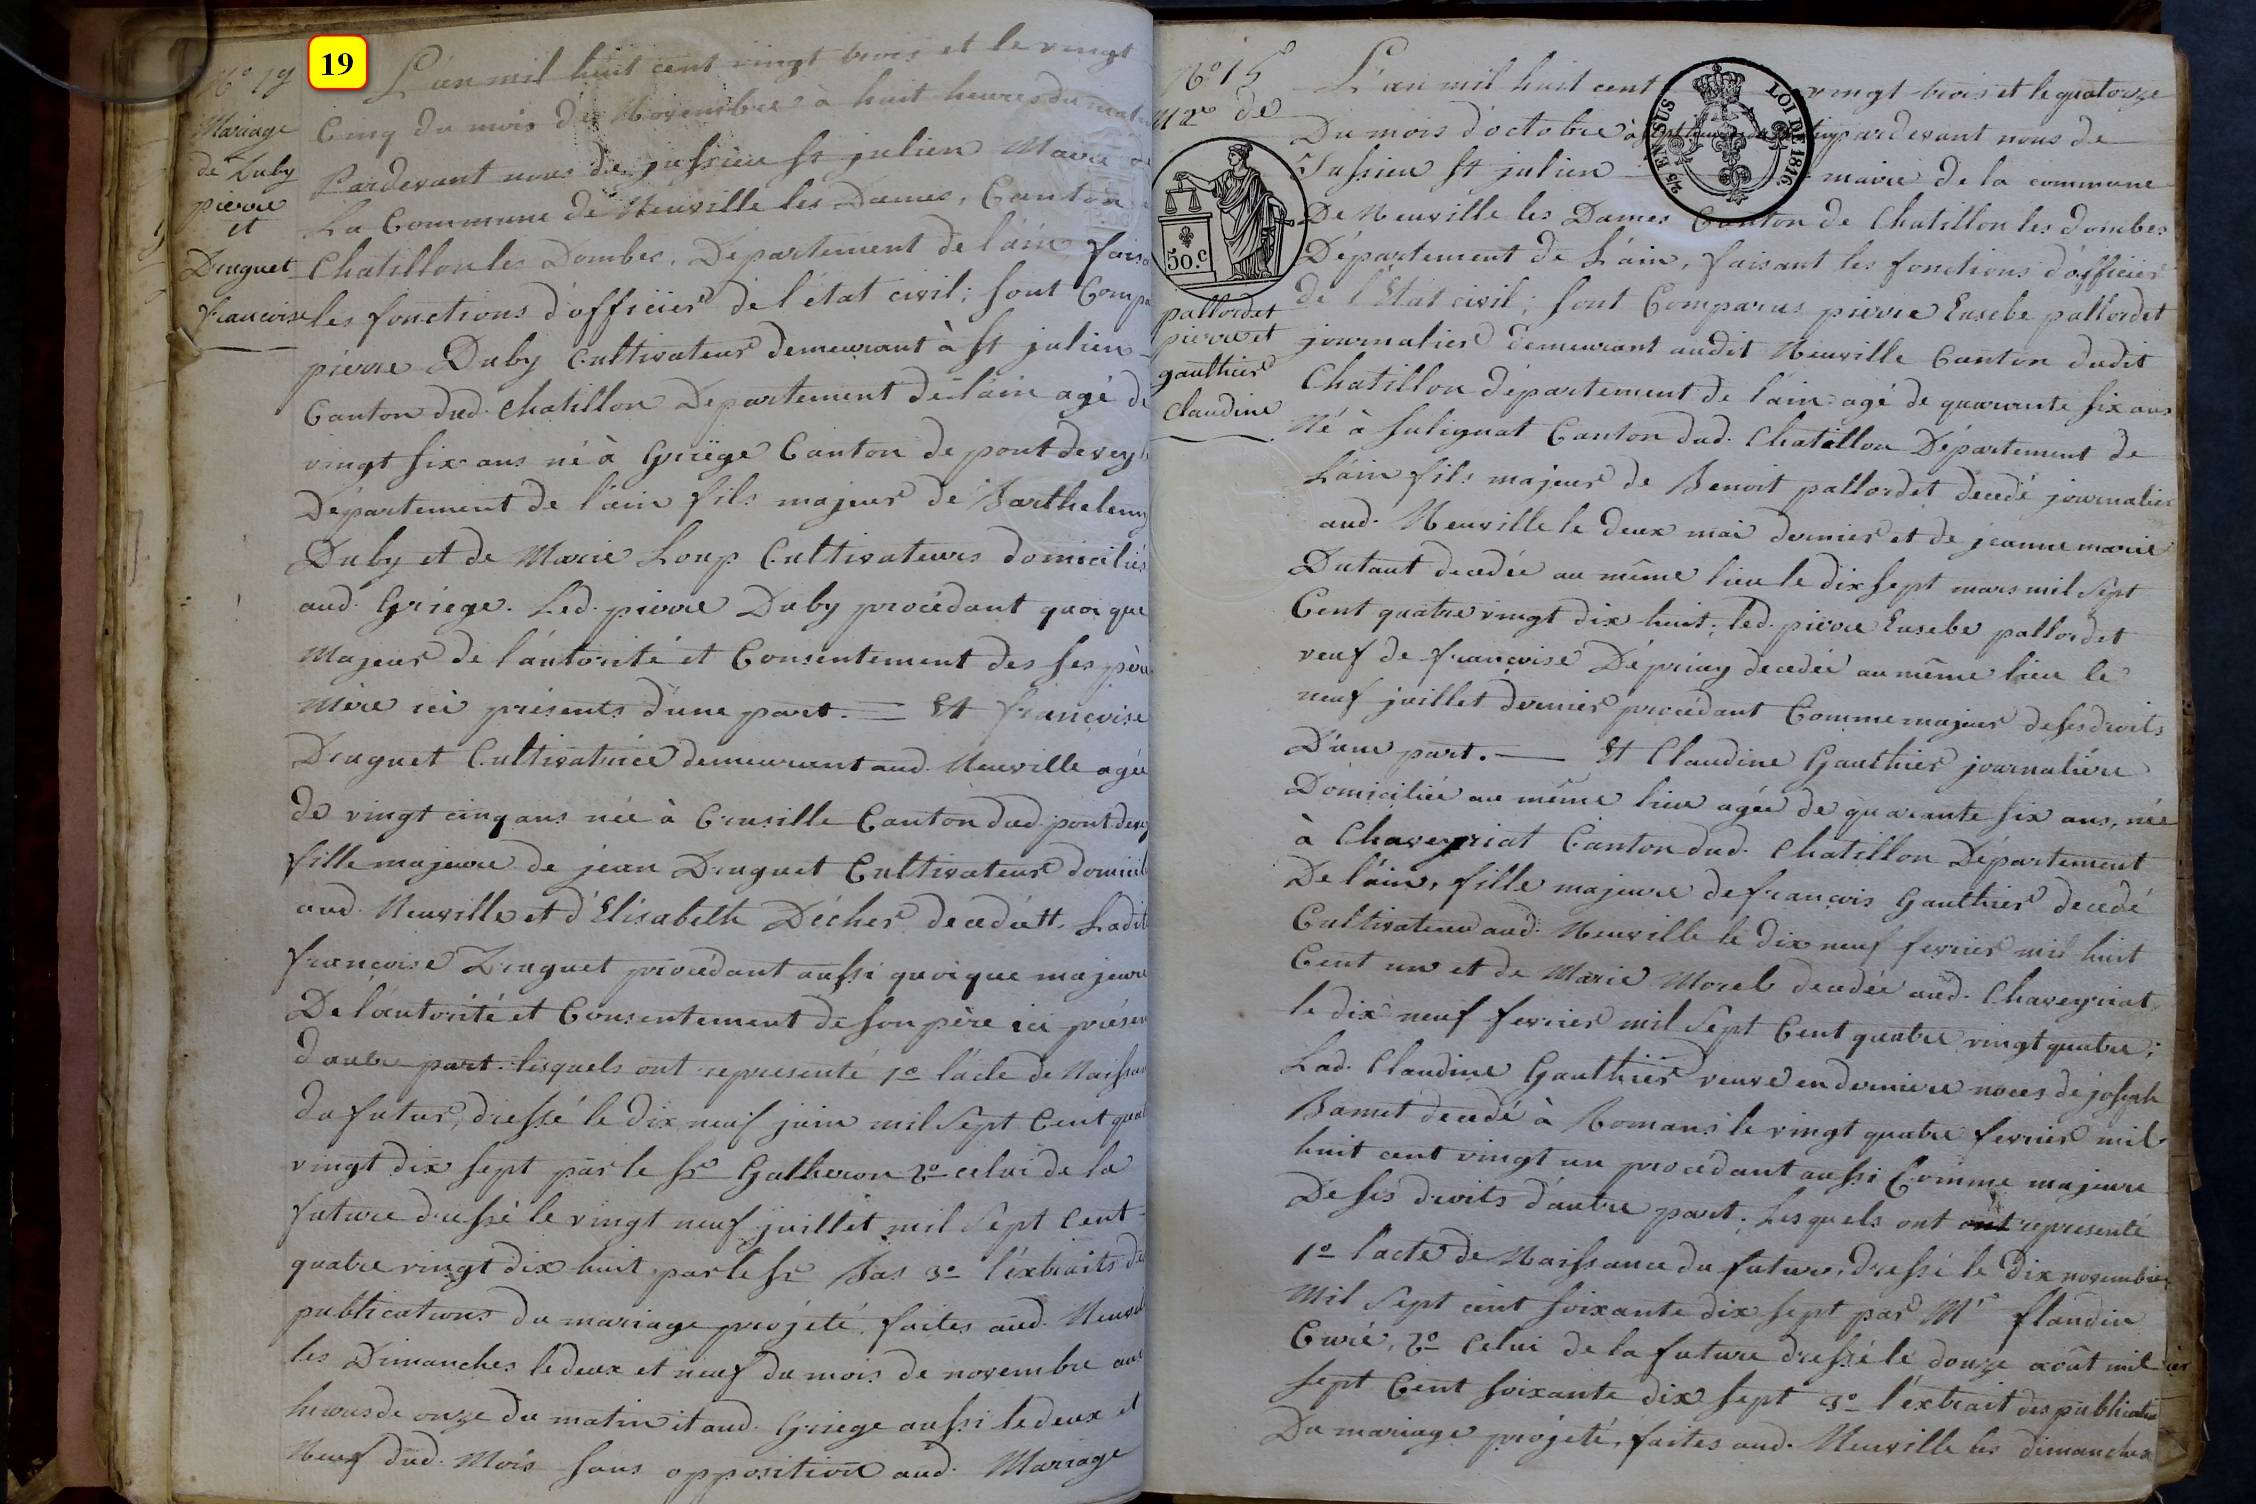 19
N° 19
Mariage
de Duby
pierre
et
Druguet
francoise
L'an mil huit cent vingt trois et le vingt
Cinq du mois de Novembre à huit heures du matin
Pardevant nous de jussieu st julien Maire de
La Commune de Neuville les Dames, Canton
Chatillon les Dombes, Département de l'ain fais
les fonctions d'officier de l'état civil; sont Comp
pierre Duby Cultivateur demeurant à st julien
Canton dud. Chatillon Département de l'ain agé de
vingt six ans né à Griège Canton de pont de vey
Département de l'ain fils majeur de Barthelemy
Duby et de Marie Loup Cultivateurs domiciliés
aud. Griege. Led. pierre Duby procédant quoi que
Majeur de l'autorité et Consentement des ses père
Mère ici présents d'une part. = Et francoise
Druguet Cultivatrice demeurant aud. Neuville agée
de vingt cinq ans née à Crusille Canton dud. pont de vey
fille majeure de jean Druguet Cultivateur domicil
aud. Neuville et d'Elisabeth Décher decedée. Ladite
francoise Druguet procédant aussi quoique majeure
De l'autorité et Consentement de son père ici présen
d'autre part. lesquels ont representé 1° l'acte de Naissan
du futur, dressé le dix neuf juin mil sept Cent quat
vingt dix sept par le sr Gatheron 2° celui de la
future dressé le vingt neuf juillet mil sept Cent
quatre vingt dix huit par le sr Bas 3° l'extraits de
publications du mariage projété, faites aud. Neuvil
les Dimanches le deux et neuf du mois de novembre aux
heures de onze du matin et aud. Griège aussi le deux et
Neuf dud. Mois sans opposition aud. Mariage
N° 15
Mre de
50.c
pallordet
pierre et
gauthier
Claudine
25 EN SUS
LOI DE 1816
L'an mil huit cent vingt trois et le quatorze
Du mois d'octobre à pardevant nous de
Jussieu st julien maire de la commune
De Neuville les Dames Canton de Chatillon les dombes
Département de L'ain, faisant les fonctions d'officier
de l'Etat civil; sont Comparus pierre Eusebe pallordet
journalier demeurant audit Neuville Canton dudit
Chatillon département de l'ain agé de quarante six ans
Né à sulignat Canton dud. Chatillon Département de
L'ain fils majeur de Benoit pallordet decedé journalier
aud. Neuville le deux mai dernier et de jeanne marie
Dutaut decedée au même lieu le dix sept mars mil sept
Cent quatre vingt dix huit; led. pierre Eusebe pallordet
veuf de francoise Dépricy decedée au même lieu le
neuf juillet dernier procédant Comme majeur de ses droits
D'une part. — Et Claudine Gauthier journalière
Domiciliée au même lieu agée de quarante six ans, née
à Chaveyriat Canton dud. Chatillon Département
De l'ain, fille majeure de francois Gauthier decedé
Cultivateur aud. Neuville le dix neuf fevrier mil huit
Cent un et de Marie Morel decedée aud. Chaveyriat
le dix neuf fevrier mil sept Cent quatre vingt quatre;
Lad. Claudine Gauthier veuve en derniere noces de joseph
Bamet decedé à Romans le vingt quatre fevrier mil
huit cent vingt un procédant aussi Comme majeure
De ses droits d'autre part. Lesquels ont representé
1° l'acte de Naissance du future, dressé le dix novembre
Mil sept cent soixante dix sept par Mr flandin
Curé, 2° celui de la future dressé le douze août mil
sept Cent soixante dix sept 3° l'extrait des publicatio
Du mariage projété, faites aud. Neuville les dimanches